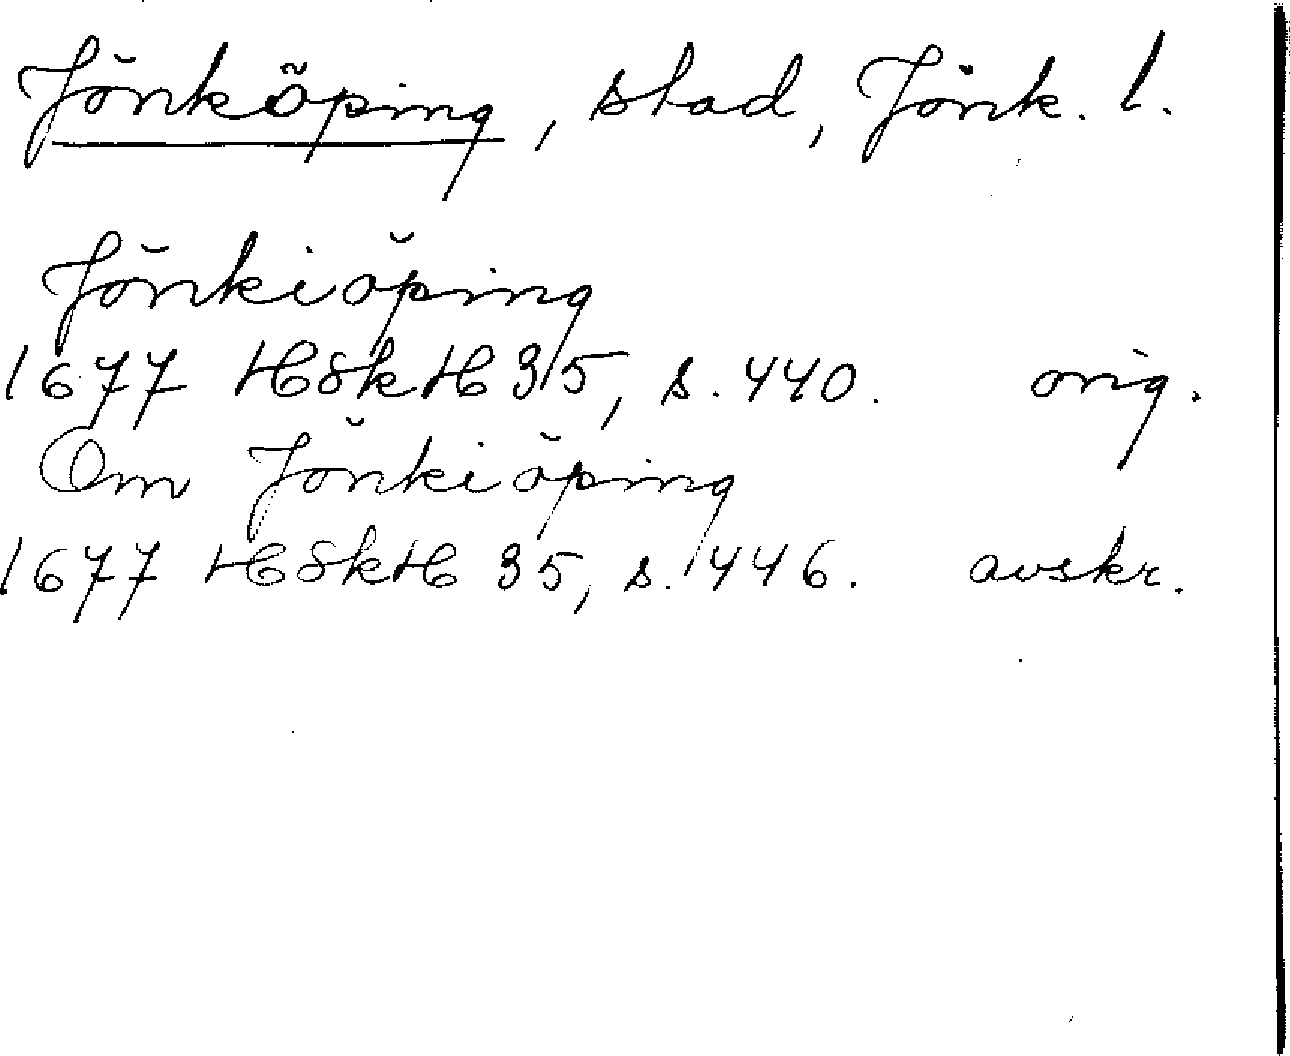 Jönköping, stad, Jönk. l.
Jönkiöping
1677 HSkH 35, s. 440. orig.
Om Jönkiöping
1677 HSkH 35, s. 446. avskr.